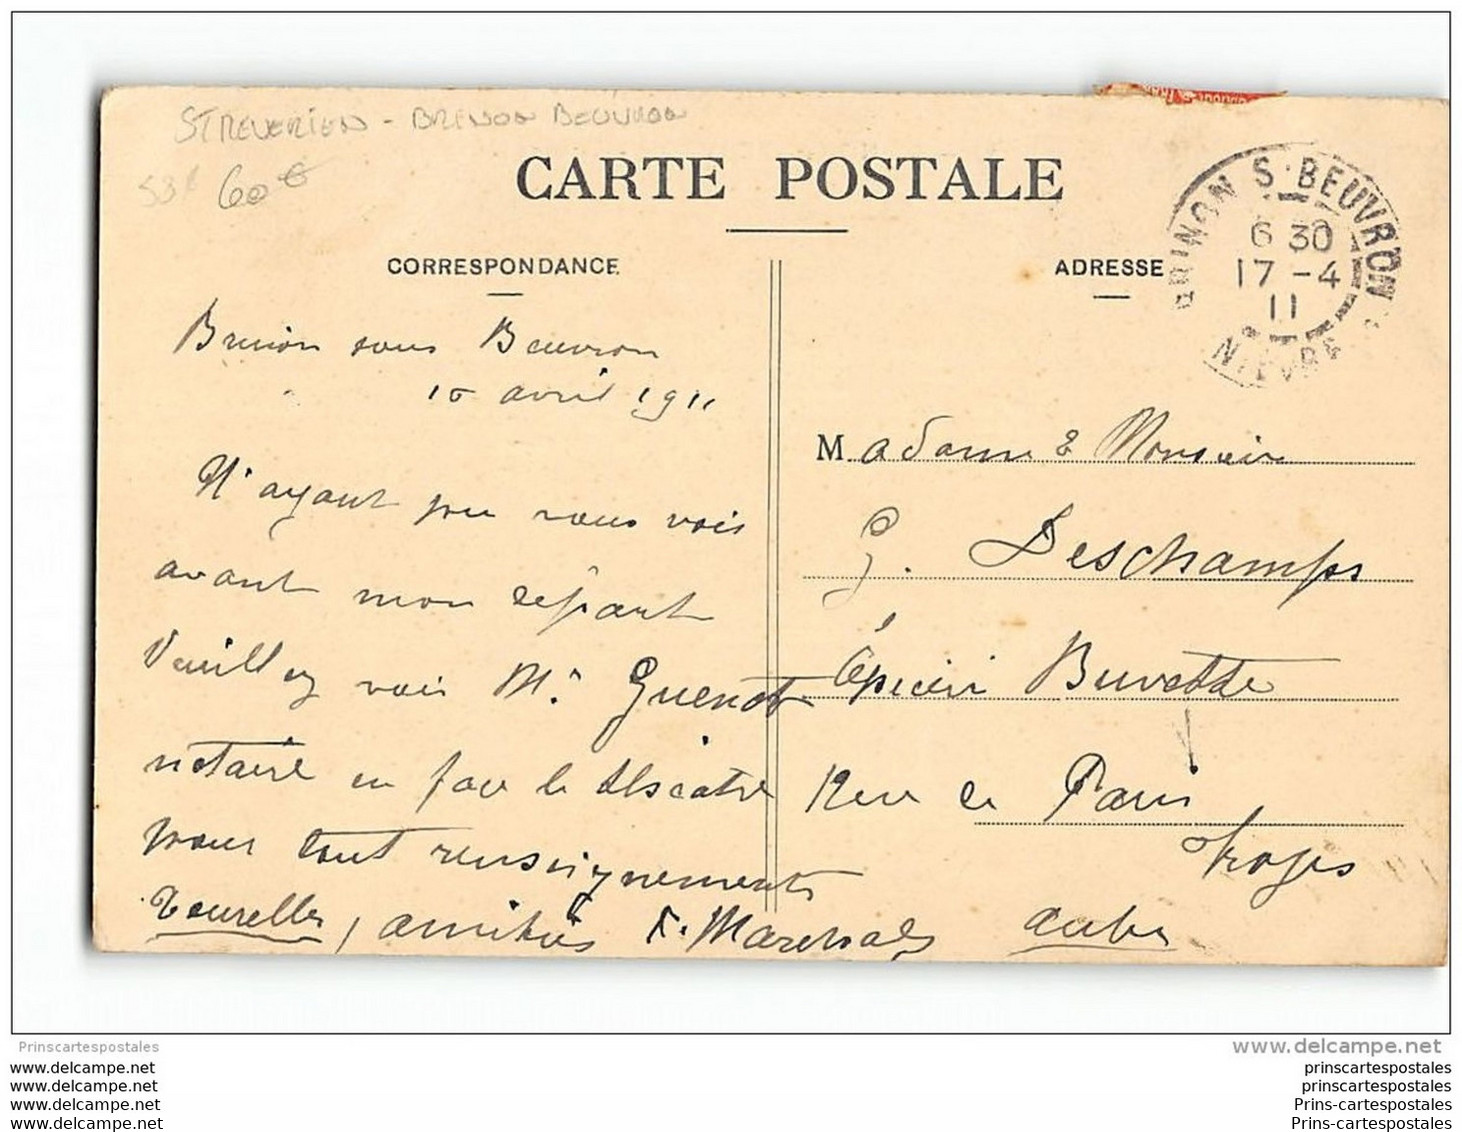 ST REVERIEN - BRINON BEUVRON
60€
CARTE POSTALE
CORRESPONDANCE
ADRESSE
BRINON S. BEUVRON
6 30
17 - 4
11
NIEVRE
Brinon sous Beuvron
16 avril 1911
N'ayant pu vous voir
avant mon départ
Veuillez voir Mr Guenot
notaire en face le théatre
pour tout renseignements
amitiés F. Marchal
Madame & Monsieur
G. Deschamps
Épicier Buvette
Rue de Paris
Troyes
Aube
Prinscartespostales
www.delcampe.net
www.delcampe.net
www.delcampe.net
www.delcampe.net
www.delcampe.net
prinscartespostales
prinscartespostales
Prins-cartespostales
Prins-cartespostales